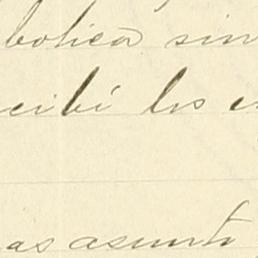 botica sin
cibí los e
as asunto